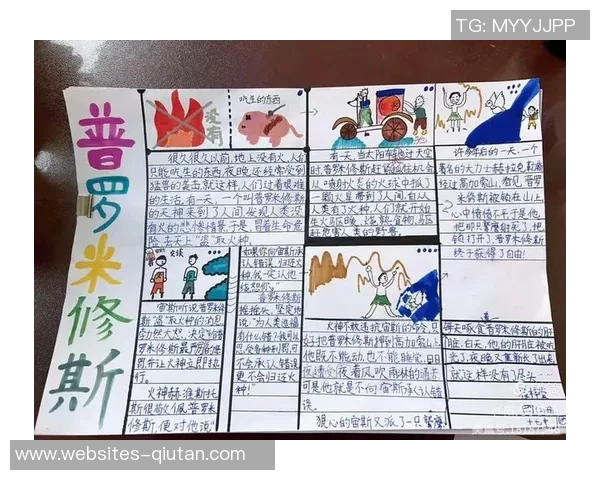 TG: MYYJJPP
普罗米修斯
没有
吃生的东西
很久很久以前,地上没有火,人们
只能吃生的东西,夜晚还经常受到
猛兽的袭击,就这样,人们过着艰难
的生活。有一天,一个叫普罗米修斯
的天神来到了人间,发现人类没
有火的悲惨情景,于是,冒着生命危
险,去天上"盗"取火种。
有一天,当太阳车驰过天空
时,普罗米修斯赶
从喷射火炎的火球中抓了
一颗火星带到了人间。自从
人类有了火种,人们就开始
生火取暖、烧熟食物、驱
赶危害人类的野兽。
许多年后的一天,一个
著名的大力士赫拉克勒斯
经过高加索山,看见普罗
米修斯被锁在山上,
心中愤愤不平,于是他
他即只鹫鹰射死了,把
锁打开了,普罗米修斯
终于获得了自由!
交谈
宙斯听说普罗米修
斯"盗"取火种的消息,
勃然大怒,决定给普
罗米修斯最严厉的惩
罚,并让火神立即执
行。
火神赫淮斯托
斯很敬佩普罗米
修斯,便对他说"
如果你向宙斯承
认错误,归还火
种,我一定让他
饶恕你。"
普罗米修斯
摇摇头,坚定地
说:"为人类造福
有什么错?我可以
忍受各种刑罚,可
不会承认错误,
更不会归还火
种!"
火神不敢违抗宙斯的命令,只
好把普罗米修斯押到高加索山上。
他既不能动,也不能睡觉,日日
夜夜遭受着风吹雨淋的痛苦
可是他就是不向宙斯承认错
误。
狠心的宙斯又派了一只鹫鹰
每天啄食普罗米修斯的肝
脏,白天,他的肝脏被吃
光了,夜晚又重新长了出来
就这样没有了尽头……
www.websites-qiutan.com